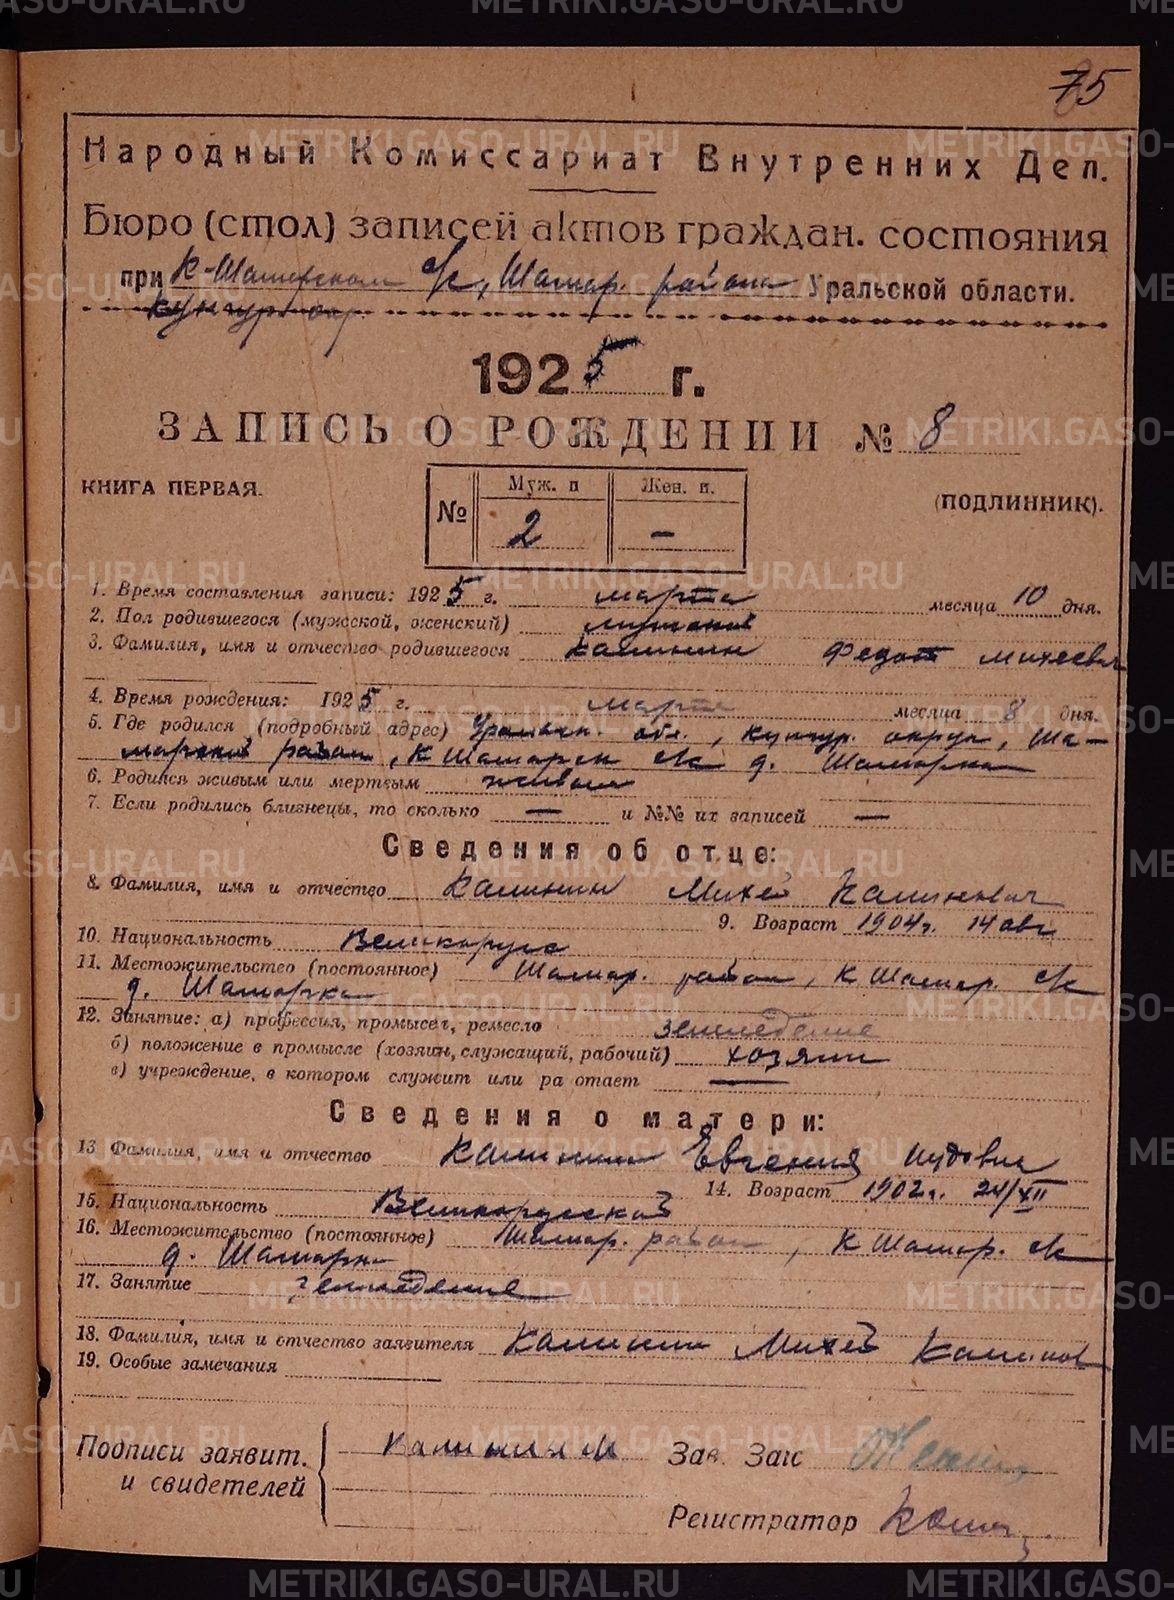 75
Народный Комиссариат Внутренних Дел.
Бюро (стол) записей актов граждан. состояния
при К-Шамарском с/с, Шамар. района Уральской области.
Кунгур. окр.
1925 г.
ЗАПИСЬ О РОЖДЕНИИ № 8
КНИГА ПЕРВАЯ.
№ Муж. п Жен. п.
2 —
(ПОДЛИННИК).
1. Время составления записи: 1925 г. марта месяца 10 дня.
2. Пол родившегося (мужской, женский) мужской
3. Фамилия, имя и отчество родившегося Калинин Федот Михеевич
4. Время рождения: 1925 г. марта месяца 8 дня.
5. Где родился (подробный адрес) Уральск. обл., Кунгур. округ, Ша-
марский район, К Шамарск с/с д. Шамарка
6. Родился живым или мертвым живым
7. Если родились близнецы, то сколько — и №№ их записей —
Сведения об отце:
8. Фамилия, имя и отчество Калинин Михей Калинович
9. Возраст 1904 г. 14 авг
10. Национальность Великорусс
11. Местожительство (постоянное) Шамар. район, К Шамар. с/с
д. Шамарка
12. Занятие: а) профессия, промысел, ремесло земледелие
б) положение в промысле (хозяин, служащий, рабочий) хозяин
в) учреждение, в котором служит или ра отает —
Сведения о матери:
13 Фамилия, имя и отчество Калинин Евгения
14. Возраст 1902 г. 24/XII
15. Национальность Великорусской
16. Местожительство (постоянное) Шамар. район, К Шамар. с/с
д. Шамарка
17. Занятие земледелие
18. Фамилия, имя и отчество заявителя Калинин Михей Калинов
19. Особые замечания —
Подписи заявит.
и свидетелей
Калинин М
Зав. Загс
Регистратор
METRIKI.GASO-URAL.RU